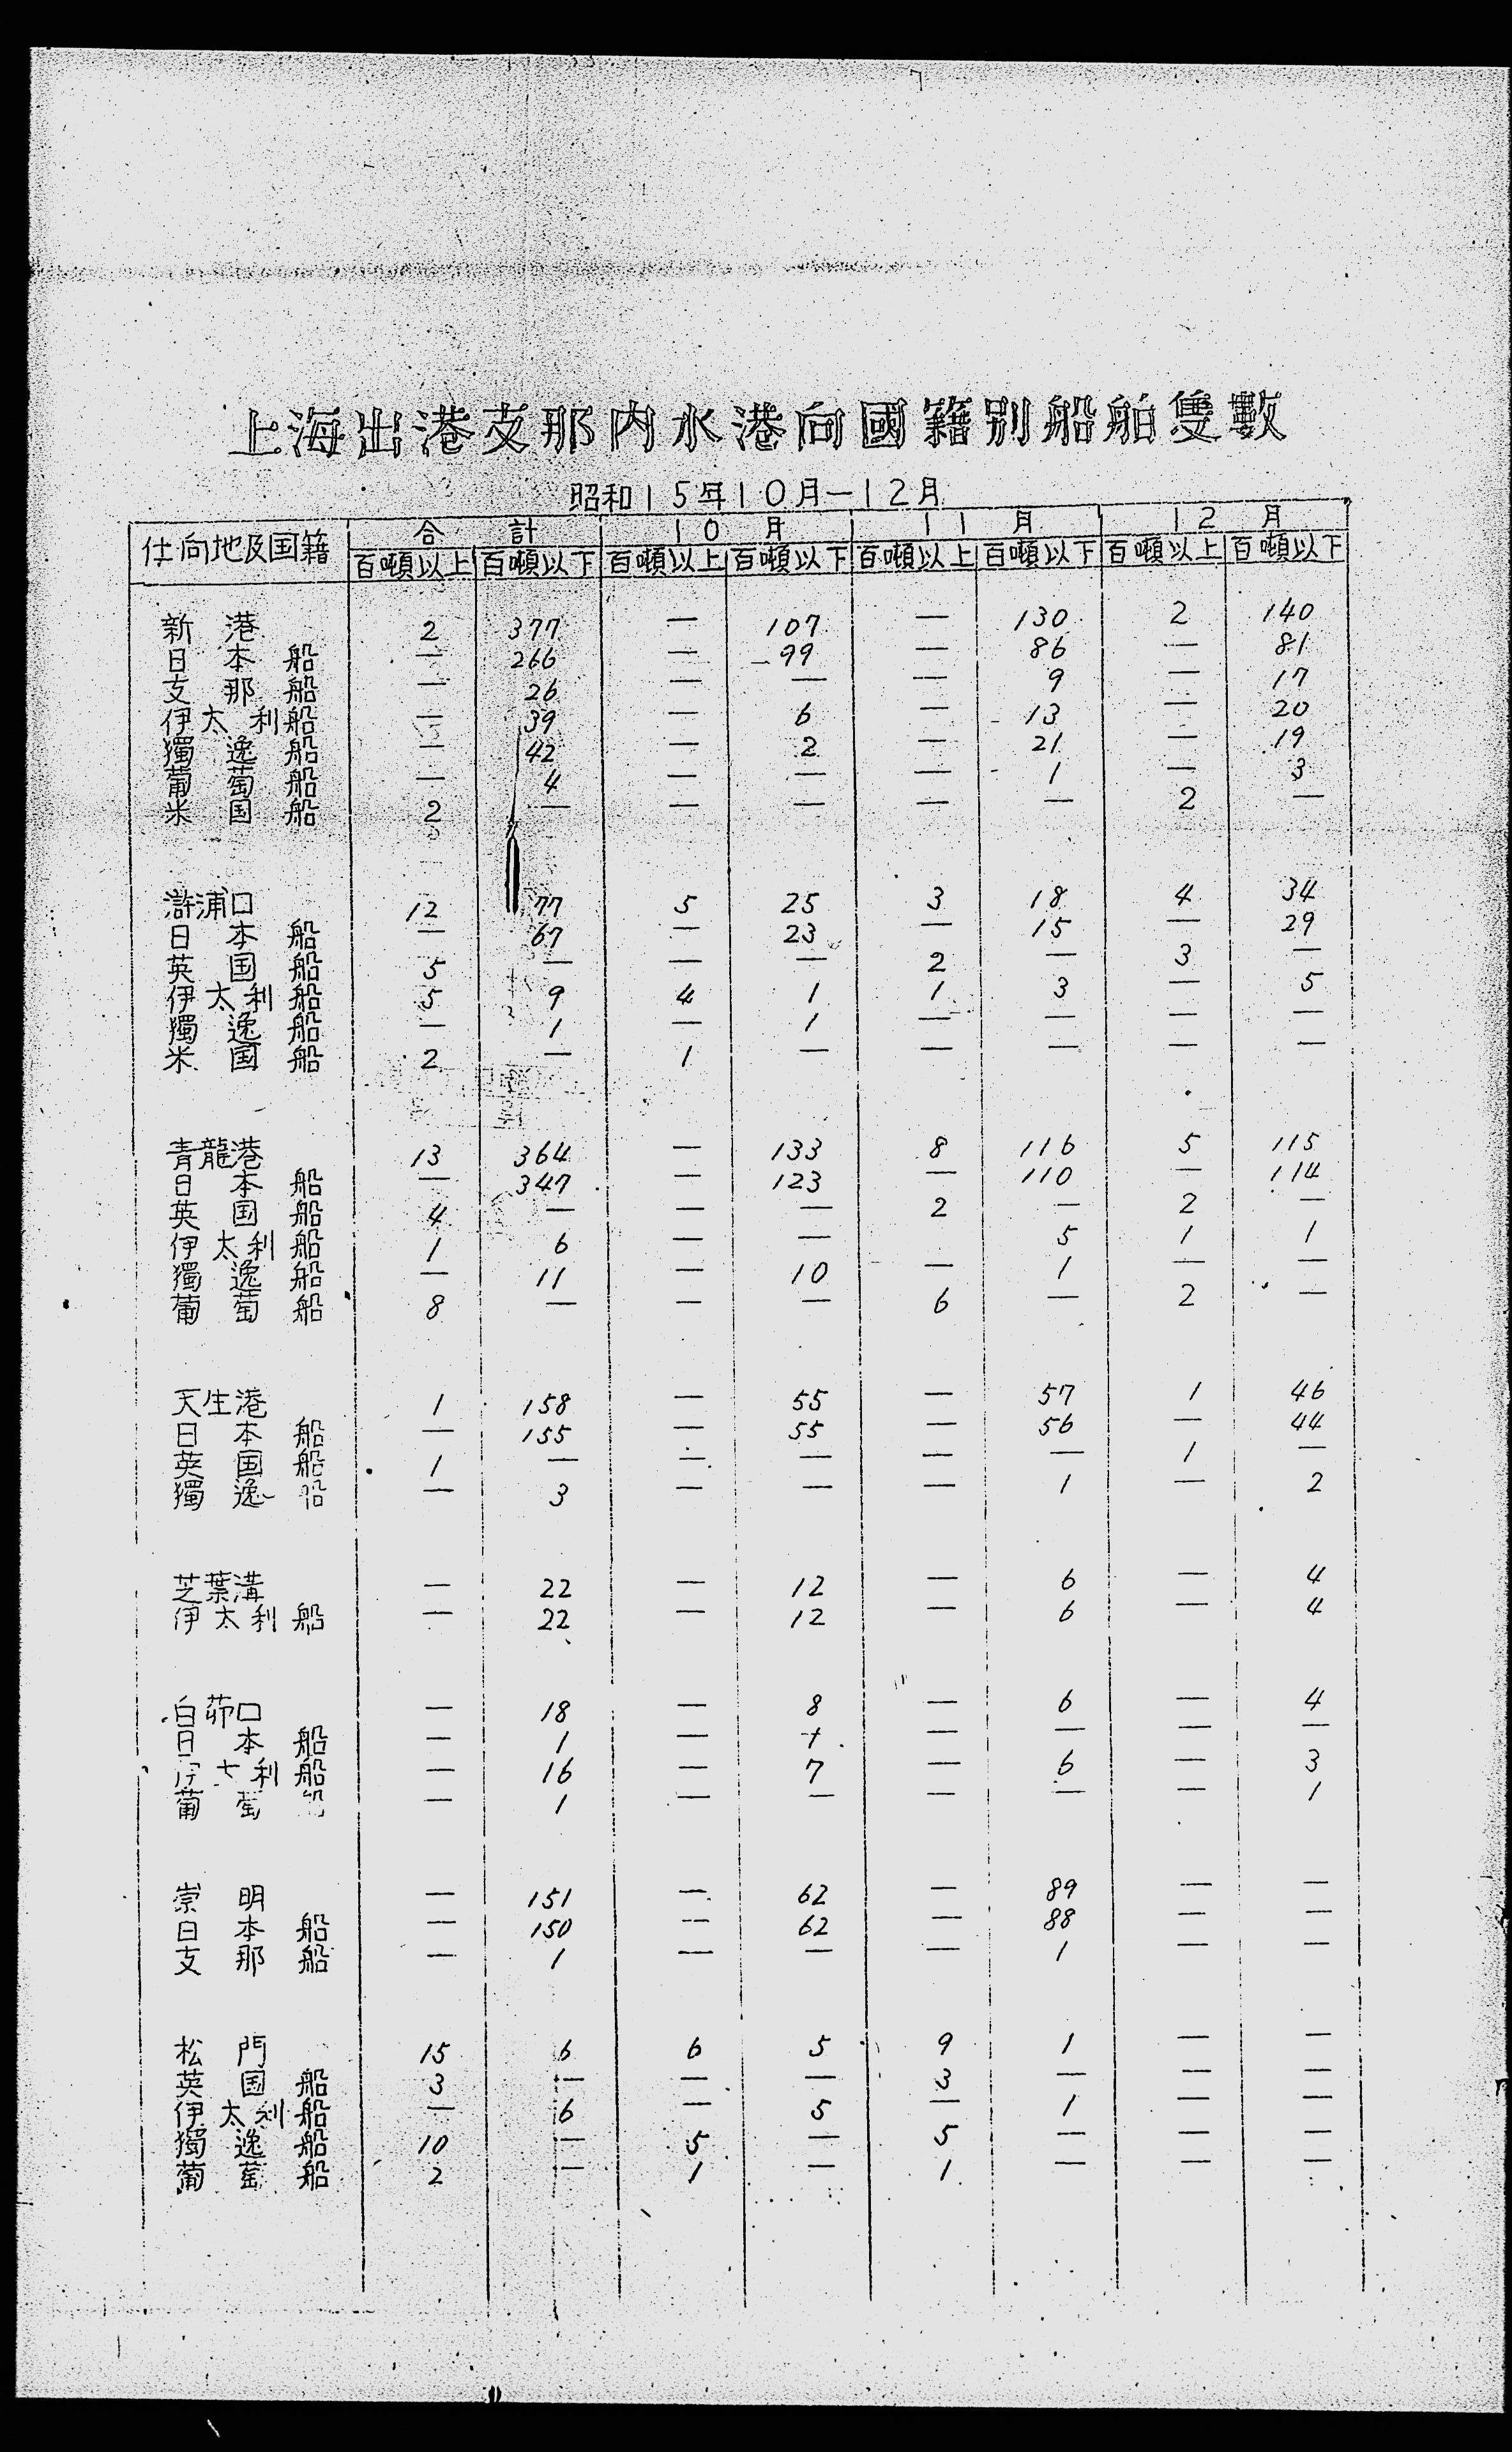 上海出港支那内水港向國籍别船舶隻數
昭和15年10月―12月
仕向地及国籍 合計 10月 11月 12月
百噸以上 百噸以下 百噸以上 百噸以下 百噸以上 百噸以下 百噸以上 百噸以下
新港 2 377 ― 107 ― 130 2 140
日本船 ― 266 ― 99 ― 86 ― 81
支那船 ― 26 ― ― ― 9 ― 17
伊太利船 ― 39 ― 6 ― 13 ― 20
獨逸船 ― 42 ― 2 ― 21 ― 19
葡萄船 ― 4 ― ― ― 1 ― 3
米国船 2 ― ― ― ― ― 2 ―
滸浦口 12 77 5 25 3 18 4 34
日本船 ― 67 ― 23 ― 15 ― 29
英国船 5 ― ― ― 2 ― 3 ―
伊太利船 5 9 4 1 1 3 ― 5
獨逸船 ― 1 ― 1 ― ― ― ―
米国船 2 ― 1 ― ― ― ― ―
青龍港 13 364 ― 133 8 116 5 115
日本船 ― 347 ― 123 ― 110 ― 114
英国船 4 ― ― ― 2 ― 2 ―
伊太利船 1 6 ― ― 5 1 1
獨逸船 ― 11 ― 10 ― 1 ― ―
葡萄船 8 ― ― ― 6 ― 2 ―
天生港 1 158 ― 55 ― 57 1 46
日本船 ― 155 ― 55 ― 56 ― 44
英国船 1 ― ― ― ― ― 1 ―
獨逸船 ― 3 ― ― ― 1 ― 2
芝葉溝 ― 22 ― 12 ― 6 ― 4
伊太利船 ― 22 ― 12 ― 6 ― 4
白茆口 ― 18 ― 8 ― 6 ― 4
日本船 ― 1 ― 1 ― ― ― ―
伊太利船 ― 16 ― 7 ― 6 ― 3
葡萄船 ― 1 ― ― ― ― ― 1
崇明 ― 151 ― 62 ― 89 ― ―
日本船 ― 150 ― 62 ― 88 ― ―
支那船 ― 1 ― ― ― 1 ― ―
松門 15 6 6 5 9 1 ― ―
英国船 3 ― ― ― 3 ― ― ―
伊太利船 ― 6 ― 5 ― 1 ― ―
獨逸船 10 ― 5 ― 5 ― ― ―
葡萄船 2 ― 1 ― 1 ― ― ―